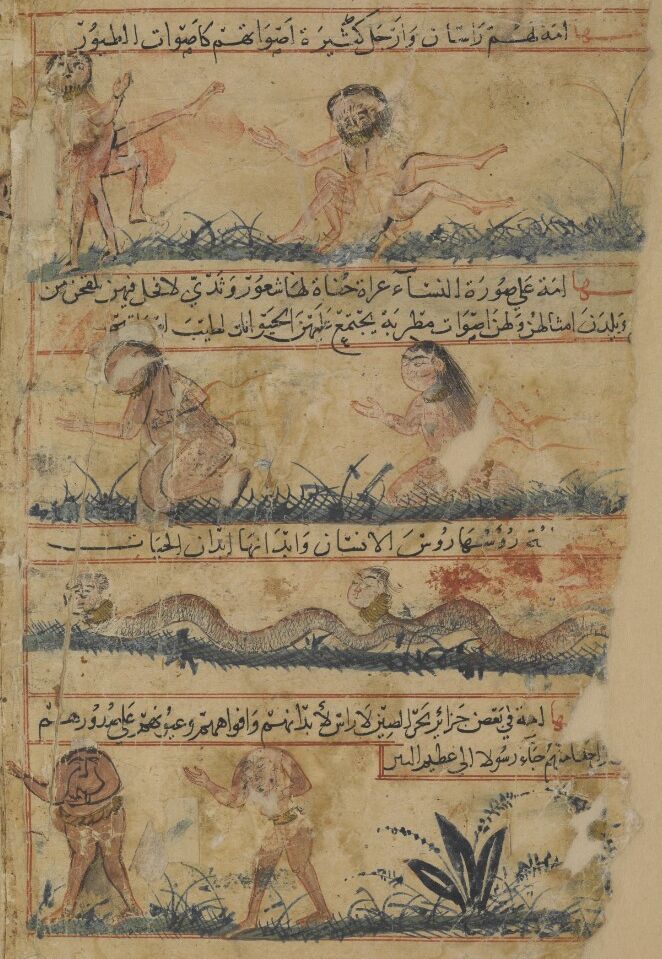 امة لهم راسان وارجل كثيرة اصواتهم كاصوات الطيور
امة على صورة النساء عراة حفاة لها شعور وثدي لا فحل فيهن يلقحن من
ويلدن امثالهن ولهن اصوات مطربة يجتمع عليهن الحيوانات لطيب
روسها روس الانسان وابدانها ابدان الحيات
امة في بعض جزائر بحر الصين لا راس لابدانهم وافواههم وعيونهم على صدورهم
منهم جاء رسولا الى عظيم